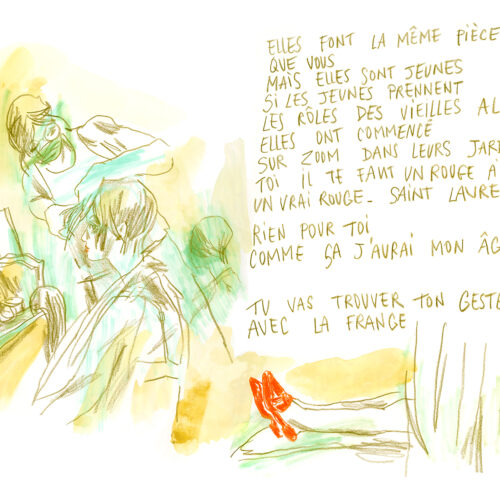 ELLES FONT LA MÊME PIÈCE
QUE VOUS
MAIS ELLES SONT JEUNES
SI LES JEUNES PRENNENT
LES RÔLES DES VIEILLES AL
ELLES ONT COMMENCÉ
SUR ZOOM DANS LEURS JAR
TOI IL TE FAUT UN ROUGE A
UN VRAI ROUGE_ SAINT LAURE
RIEN POUR TOI
COMME ÇA J'AURAI MON ÂG
TU VAS TROUVER TON GESTE
AVEC LA FRANGE